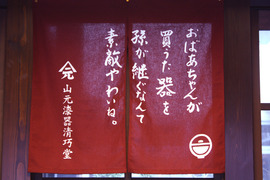 おばあちゃんが
買うた器を
孫が継ぐなんて
素敵やわいね。
山元漆器清巧堂